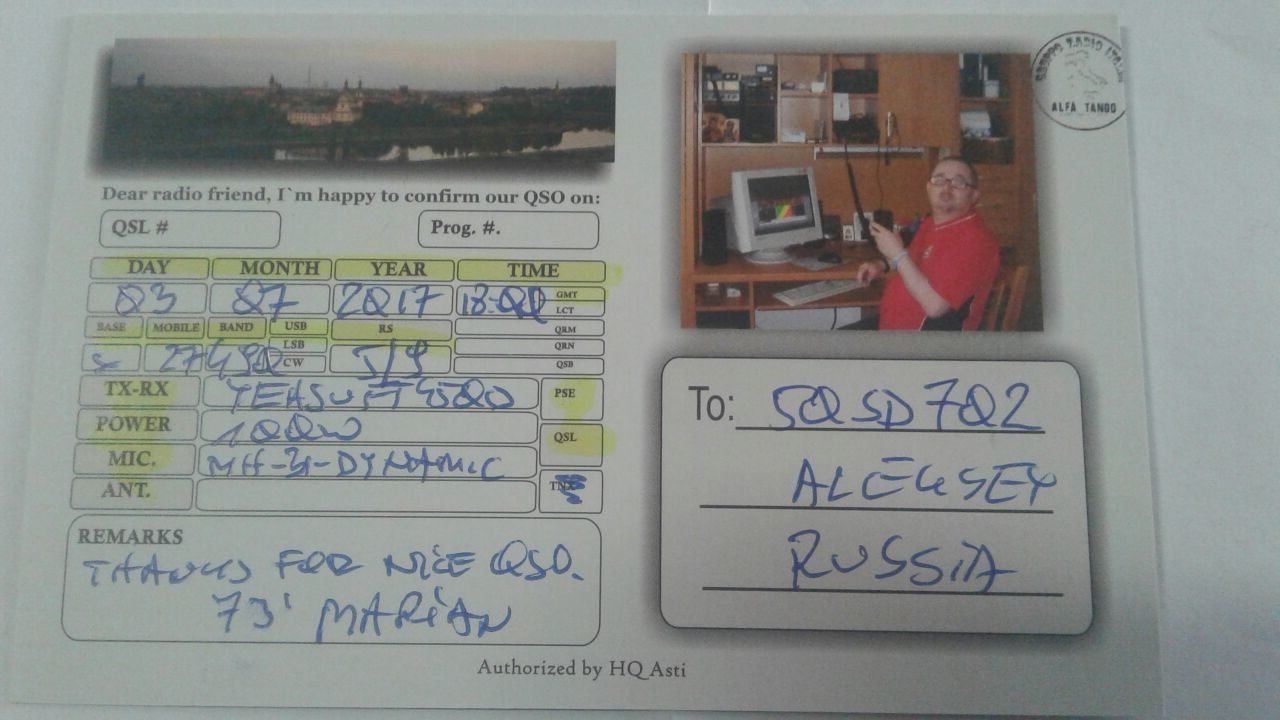 Dear radio friend, I`m happy to confirm our QSO on:
QSL #
Prog. #.
DAY MONTH YEAR TIME
03 07 2017 18-00 GMT
LCT
BASE MOBILE BAND USB RS QRM
LSB QRN
27490 CW 5/9 QSB
TX-RX YEASU FT 450D PSE
POWER 100W
QSL
MIC. MH-31-DYNAMIC
ANT. TNX
REMARKS
THANKS FOR NICE QSO.
73' MARIAN
GRUPPO RADIO ITALIA
ALFA TANGO
To: 50SD702
ALEKSEY
RUSSIA
Authorized by HQ Asti